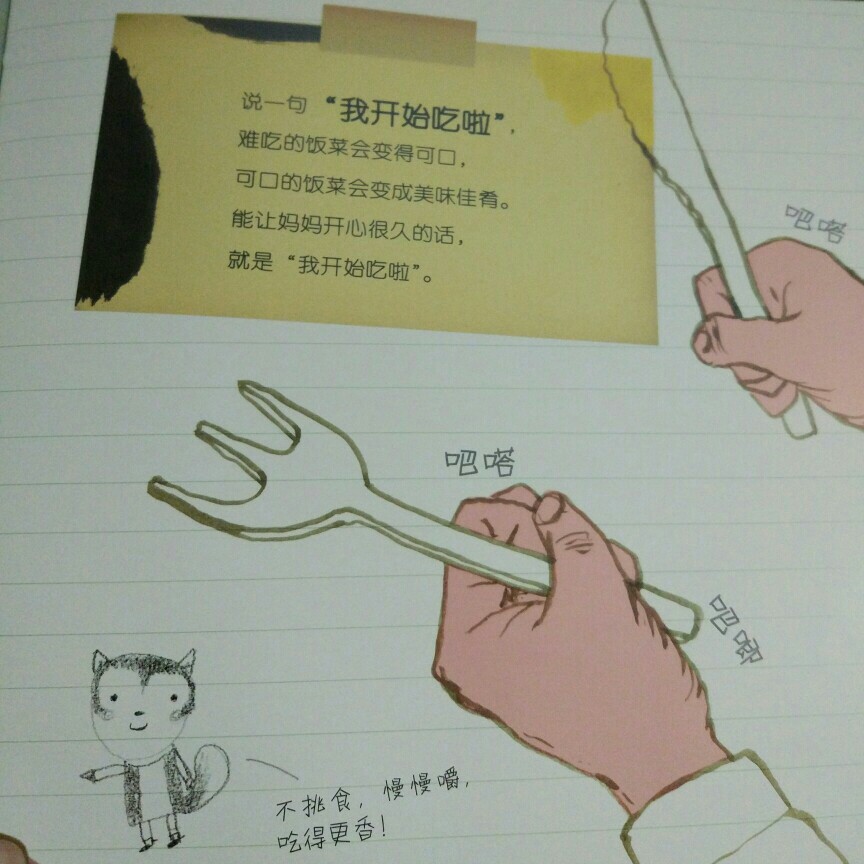 说一句“我开始吃啦”,
难吃的饭菜会变得可口,
可口的饭菜会变成美味佳肴。
能让妈妈开心很久的话,
就是“我开始吃啦”。
吧嗒
吧嗒
吧唧
不挑食,慢慢嚼,
吃得更香!